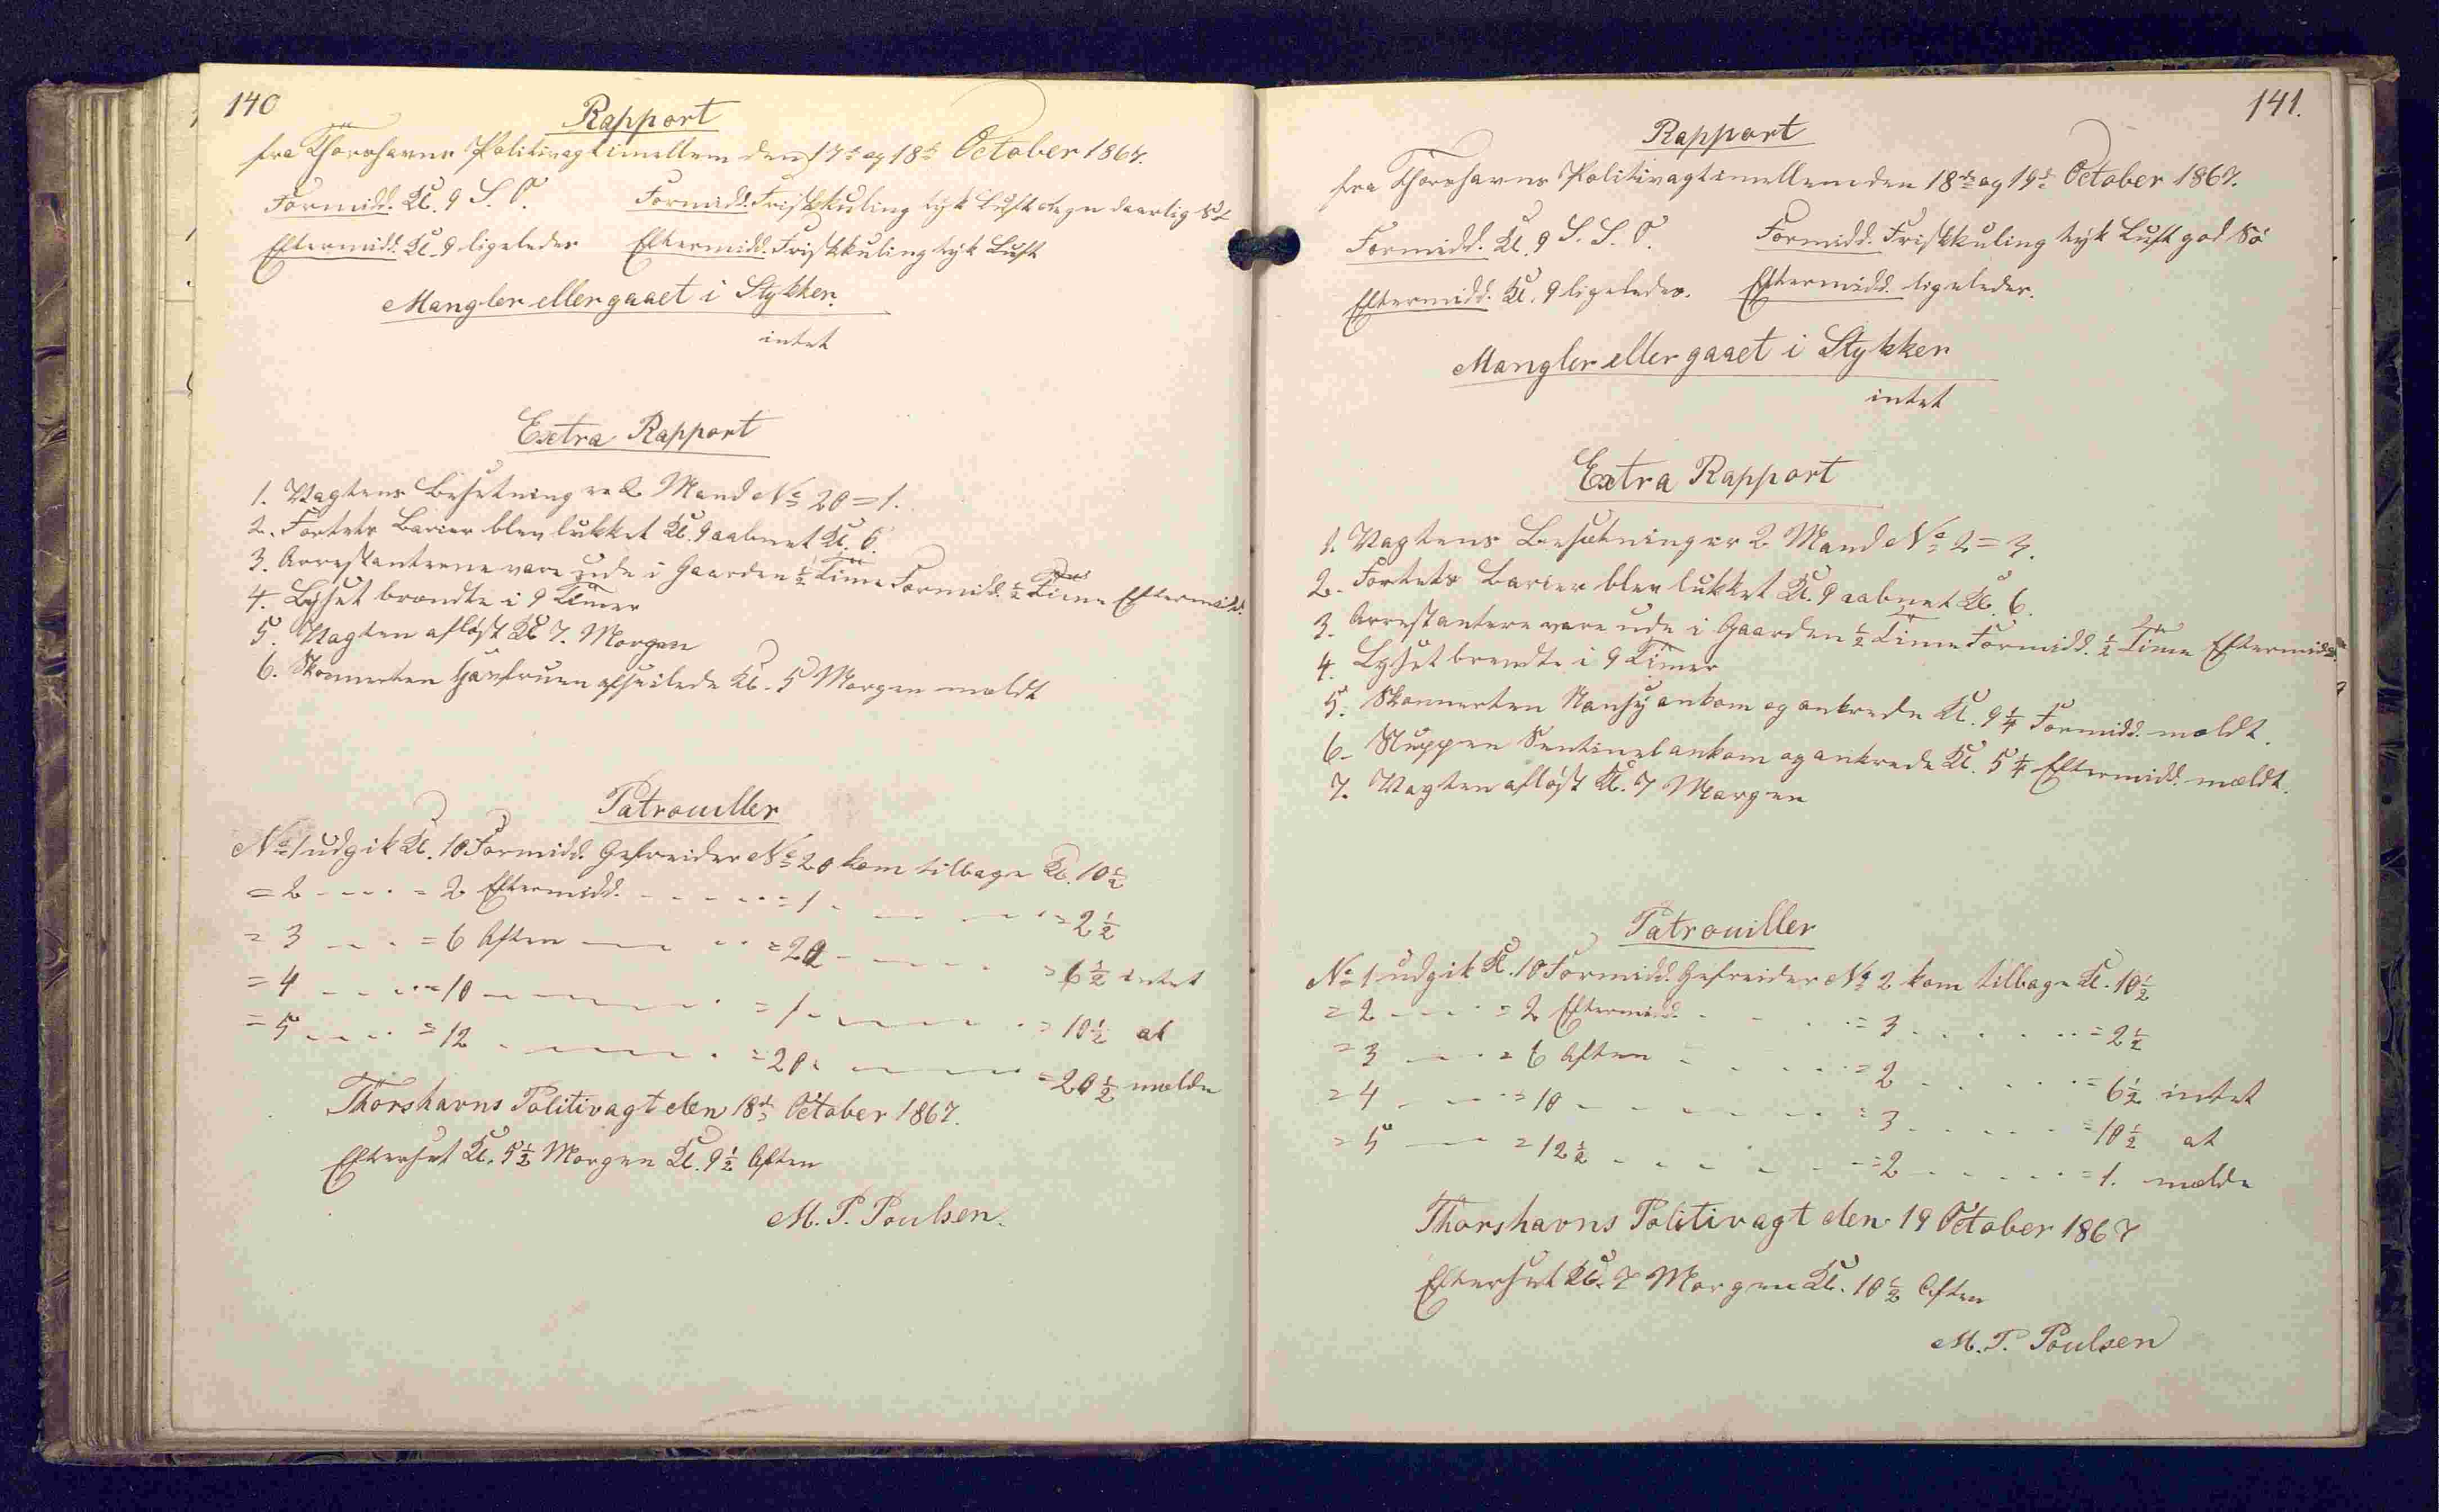 140
Rapport
fra Thorshavns Politivagt imellem den 17de og 18de October 1867.
Formidd. Kl. 9 S. O. Formidd. Friskkuling tyk Luft Regn daarlig Sö
Eftermidd. Kl. 9 ligeledes Eftermidd. Friskkuling tyk Luft
Mangler eller gaaet i Stykker.
intet
Extra Rapport
1. Vagtens Besætning er 2 Mand No 20 = 1.
2. Fortets Barier blev lukket Kl. 9 aabnet Kl. 6.
3. Arrestanterne vare ude i Gaarden ½ Time Formidd. ½ Time Eftermidd.
4. Lyset brændte i 9 Timer
5. Vagten aflöst Kl. 7. Morgen
6. Skonnerten Havfruen afseilede Kl. 5 Morgen mældt
Patrouiller
No 1 udgik Kl. 10 Formidd. Gefreider No 20 kom tilbage Kl. 10½
= 2 - - - - = 2 Eftermidd. - - - - - = 1 - - - - - = 2½
= 3 - - - = 6 Aften - - - - = 20 - - - - - = 6½ intet
= 4 - - - = 10 - - - - - - = 1 - - - - - = 10½ at
= 5 - - - = 12 - - - - - - = 20 - - - - = 20½ melde
Thorshavns Politivagt den 18de October 1867.
Efterset Kl. 5½ Morgen Kl. 9½ Aften
M. P. Poulsen.
141.
Rapport
fra Thorshavns Politivagt imellem den 18de og 19de October 1867.
Formidd. Kl. 9 S. S. O. Formidd. Friskkuling tyk Luft god Sö
Eftermidd. Kl. 9 ligeledes. Eftermidd. ligeledes.
Mangler eller gaaet i Stykker
intet
Extra Rapport
1. Vagtens Besætning er 2 Mand No 2 = 3.
2. Fortets Barier blev lukket Kl. 9 aabnet Kl. 6.
3. Arrestantere vare ude i Gaarden ½ Time Formidd. ½ Time Eftermidd.
4. Lyset brendte i 9 Timer
5. Skonnerten Nansy ankom og ankrede Kl. 9¼ Formidd. mældt.
6. Sluppen Sentinel ankom og ankrede Kl. 5¼ Eftermidd. mældt.
7. Vagten aflöst Kl. 7 Morgen
Patrouiller
No 1 udgik Kl. 10 Formidd. Gefreider No 2 kom tilbage Kl. 10½
= 2 - - - = 2 Eftermidd. - - - - = 3 - - - - - = 2½
= 3 - - - = 6 Aften - - - - - = 2 - - - - - = 6½ intet
= 4 - - - = 10 - - - - - - = 3 - - - - - = 10½ at
= 5 - - - = 12½ - - - - - - = 2 - - - - - = 1. mælde
Thorshavns Politivagt den 19 October 1867
Efterset Kl. 7 Morgen Kl. 10½ Aften
M. P. Poulsen